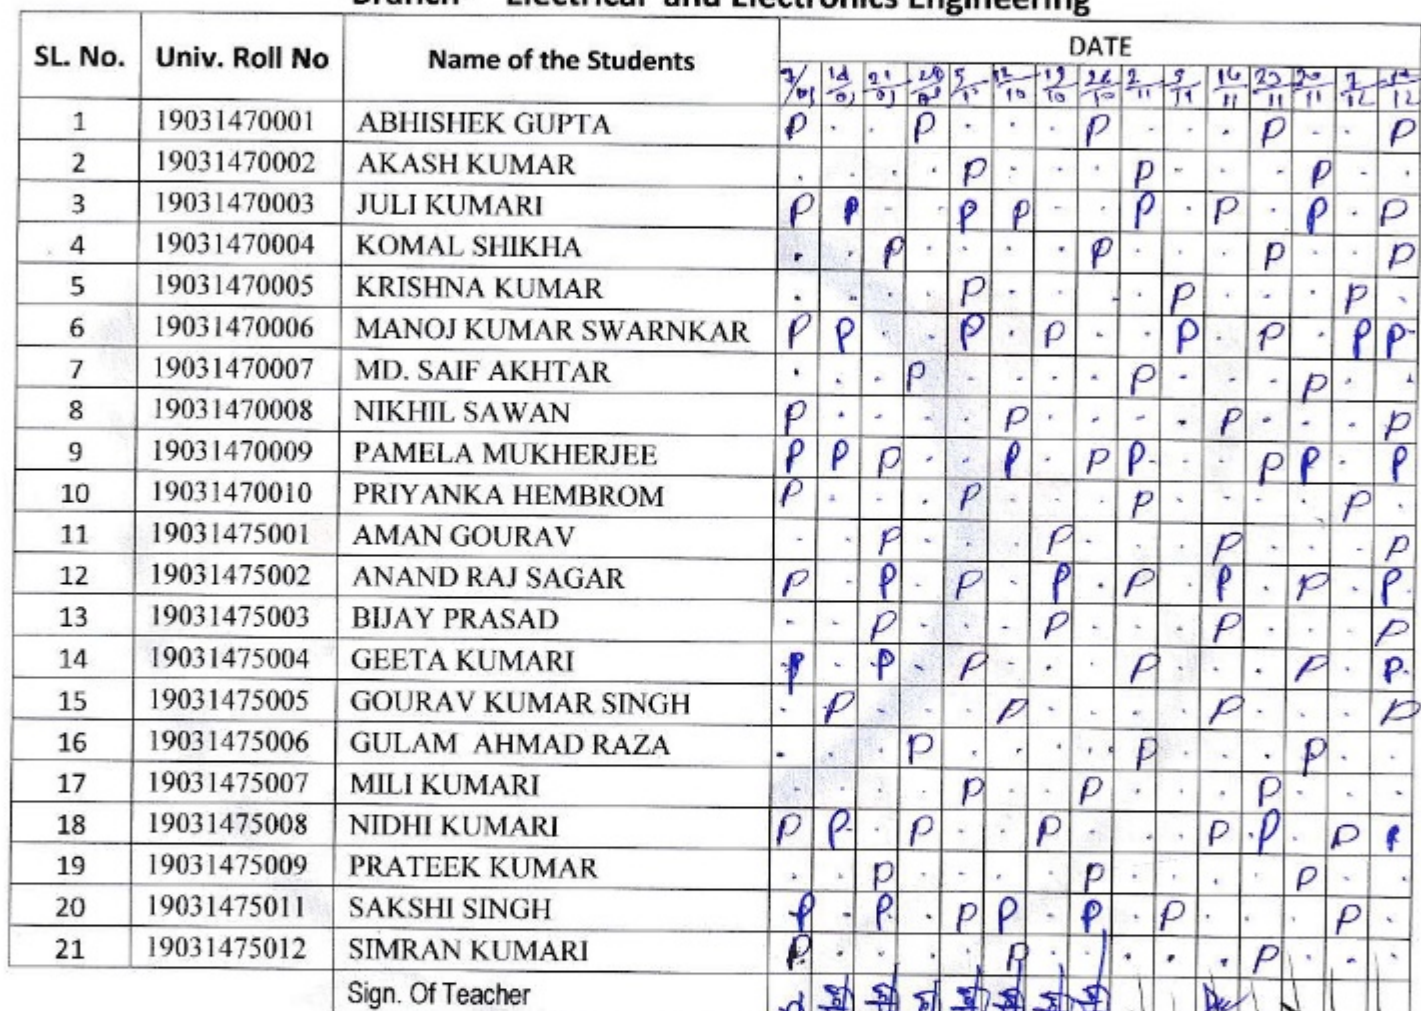 Branch - Electrical and Electronics Engineering
SL. No. Univ. Roll No Name of the Students DATE
7/09 14/09 21/09 28/09 5/10 12/10 19/10 26/10 2/11 9/11 16/11 23/11 30/11 7/12 14/12
1 19031470001 ABHISHEK GUPTA P . . P . . . P . . . P . . P
2 19031470002 AKASH KUMAR . . . . P . . . P . . . P . .
3 19031470003 JULI KUMARI P P . . P P . . P . P . P . P
4 19031470004 KOMAL SHIKHA . . P . . . . P . . . P . . P
5 19031470005 KRISHNA KUMAR . . . . P . . . . P . . . P .
6 19031470006 MANOJ KUMAR SWARNKAR P P . . P . P . . P . P . P P
7 19031470007 MD. SAIF AKHTAR . . . P . . . . P . . . P . .
8 19031470008 NIKHIL SAWAN P . . . . P . . . . P . . . P
9 19031470009 PAMELA MUKHERJEE P P P . . P . P P . . P P . P
10 19031470010 PRIYANKA HEMBROM P . . . P . . . P . . . . P .
11 19031475001 AMAN GOURAV . . P . . . P . . . P . . . P
12 19031475002 ANAND RAJ SAGAR P . P . P . P . P . P . P . P
13 19031475003 BIJAY PRASAD . . P . . . P . . . P . . . P
14 19031475004 GEETA KUMARI P . P . P . . . P . . . P . P
15 19031475005 GOURAV KUMAR SINGH . P . . . P . . . . P . . . P
16 19031475006 GULAM AHMAD RAZA . . . P . . . . P . . . P . .
17 19031475007 MILI KUMARI . . . . P . . P . . . P . . .
18 19031475008 NIDHI KUMARI P P . P . . P . . . P P . P P
19 19031475009 PRATEEK KUMAR . . P . . . . P . . . . P . .
20 19031475011 SAKSHI SINGH P . P . P P . P . P . . . P .
21 19031475012 SIMRAN KUMARI P . . . . P . . . . . P . . .
Sign. Of Teacher